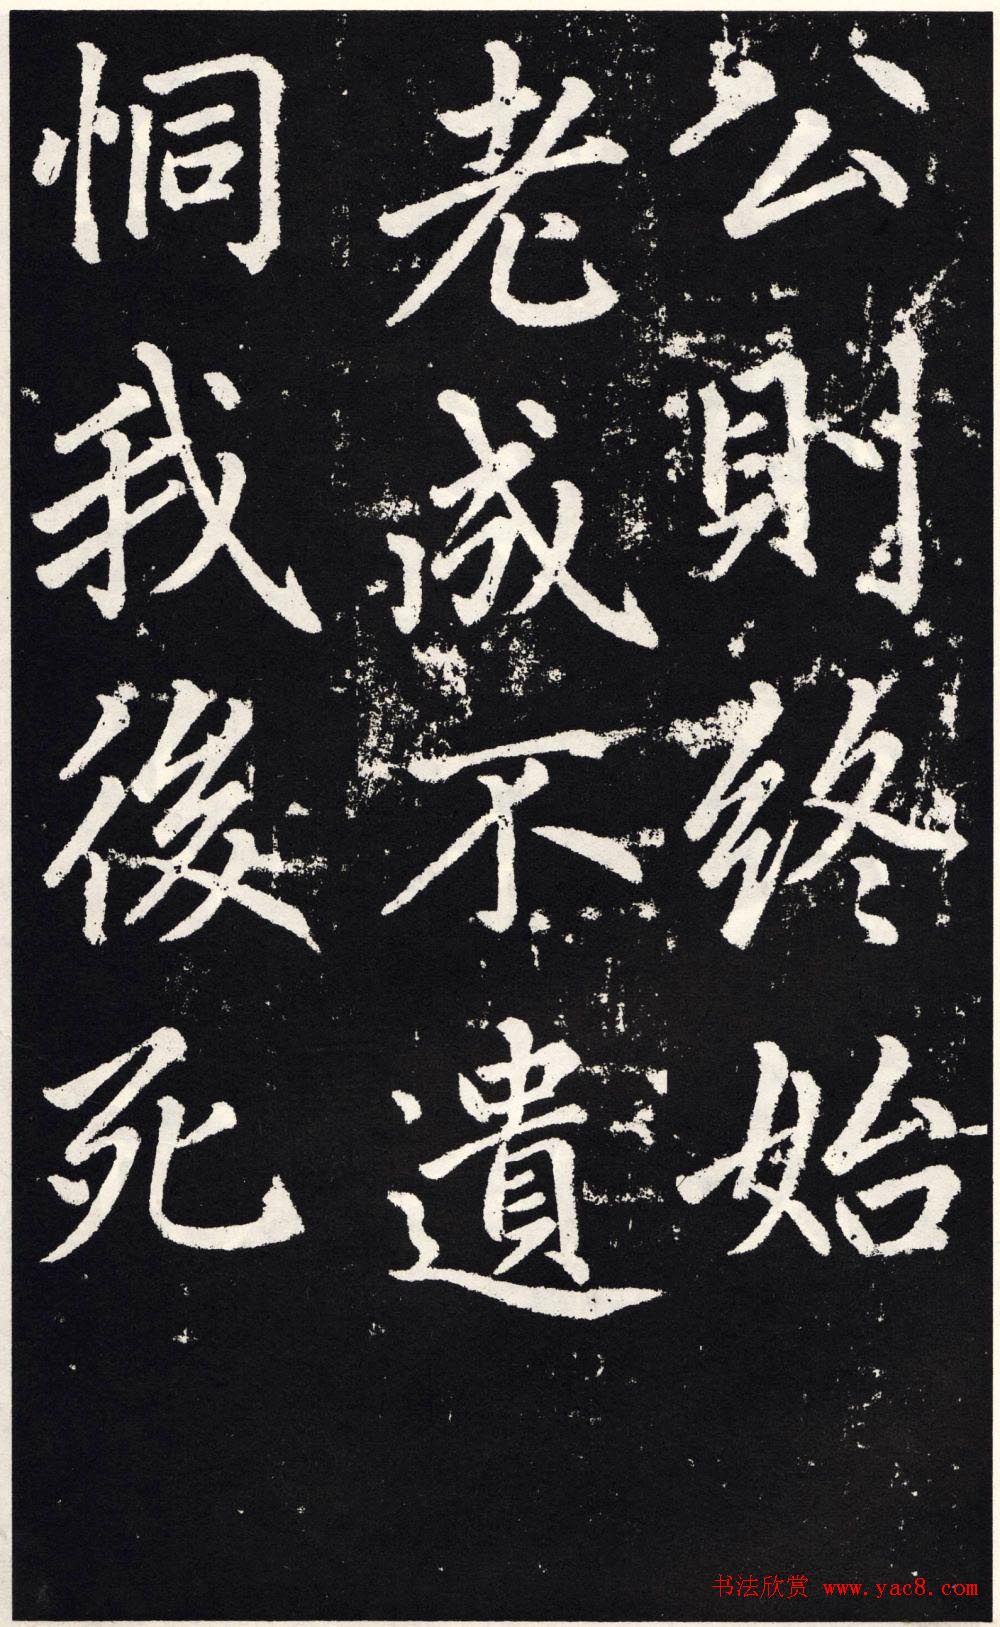 公則終始
老成不遺
恫我後死
书法欣赏 www.yac8.com